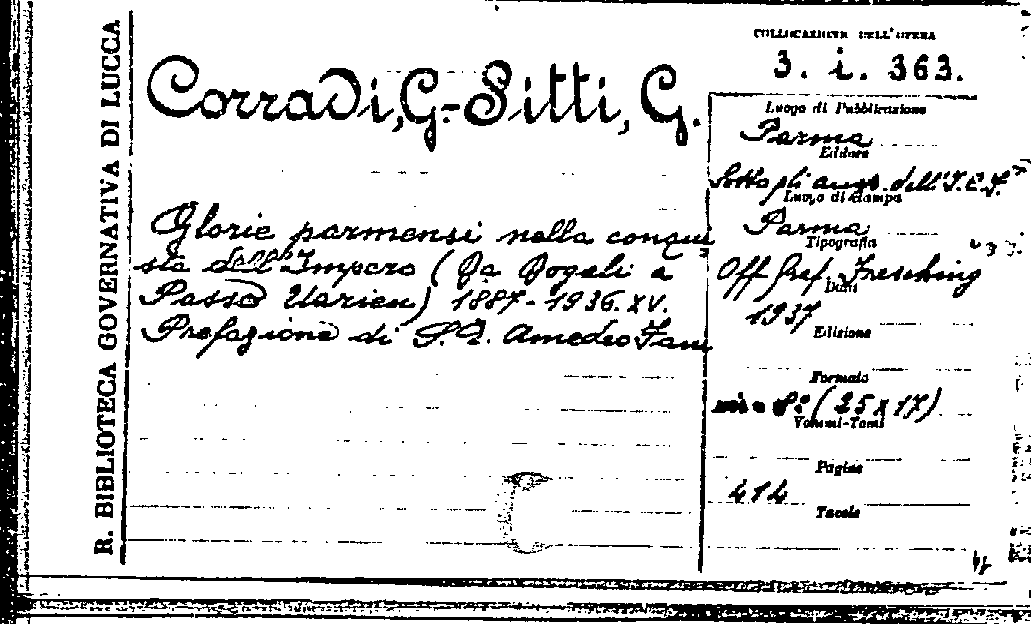 R. BIBLIOTECA GOVERNATIVA DI LUCCA
COLLOCAZIONE DELL'OPERA
3. i. 363.
Corradi, G.-Sitti, G.
Glorie parmensi nella conqui
sta dell'Impero (Da Dogali a
Passo Uarieu) 1887-1936.XV.
Prefazione di S.E. Amedeo Fani
Luogo di Pubblicazione
Parma
Editore
Sotto gli aus. dell'I.C.F.
Luogo di stampa
Parma
Tipografia
Off Graf. Fresching
Data
1937
Edizione
Formato
in 8° (25x17)
Volumi-Tomi
Pagine
414
Tavole